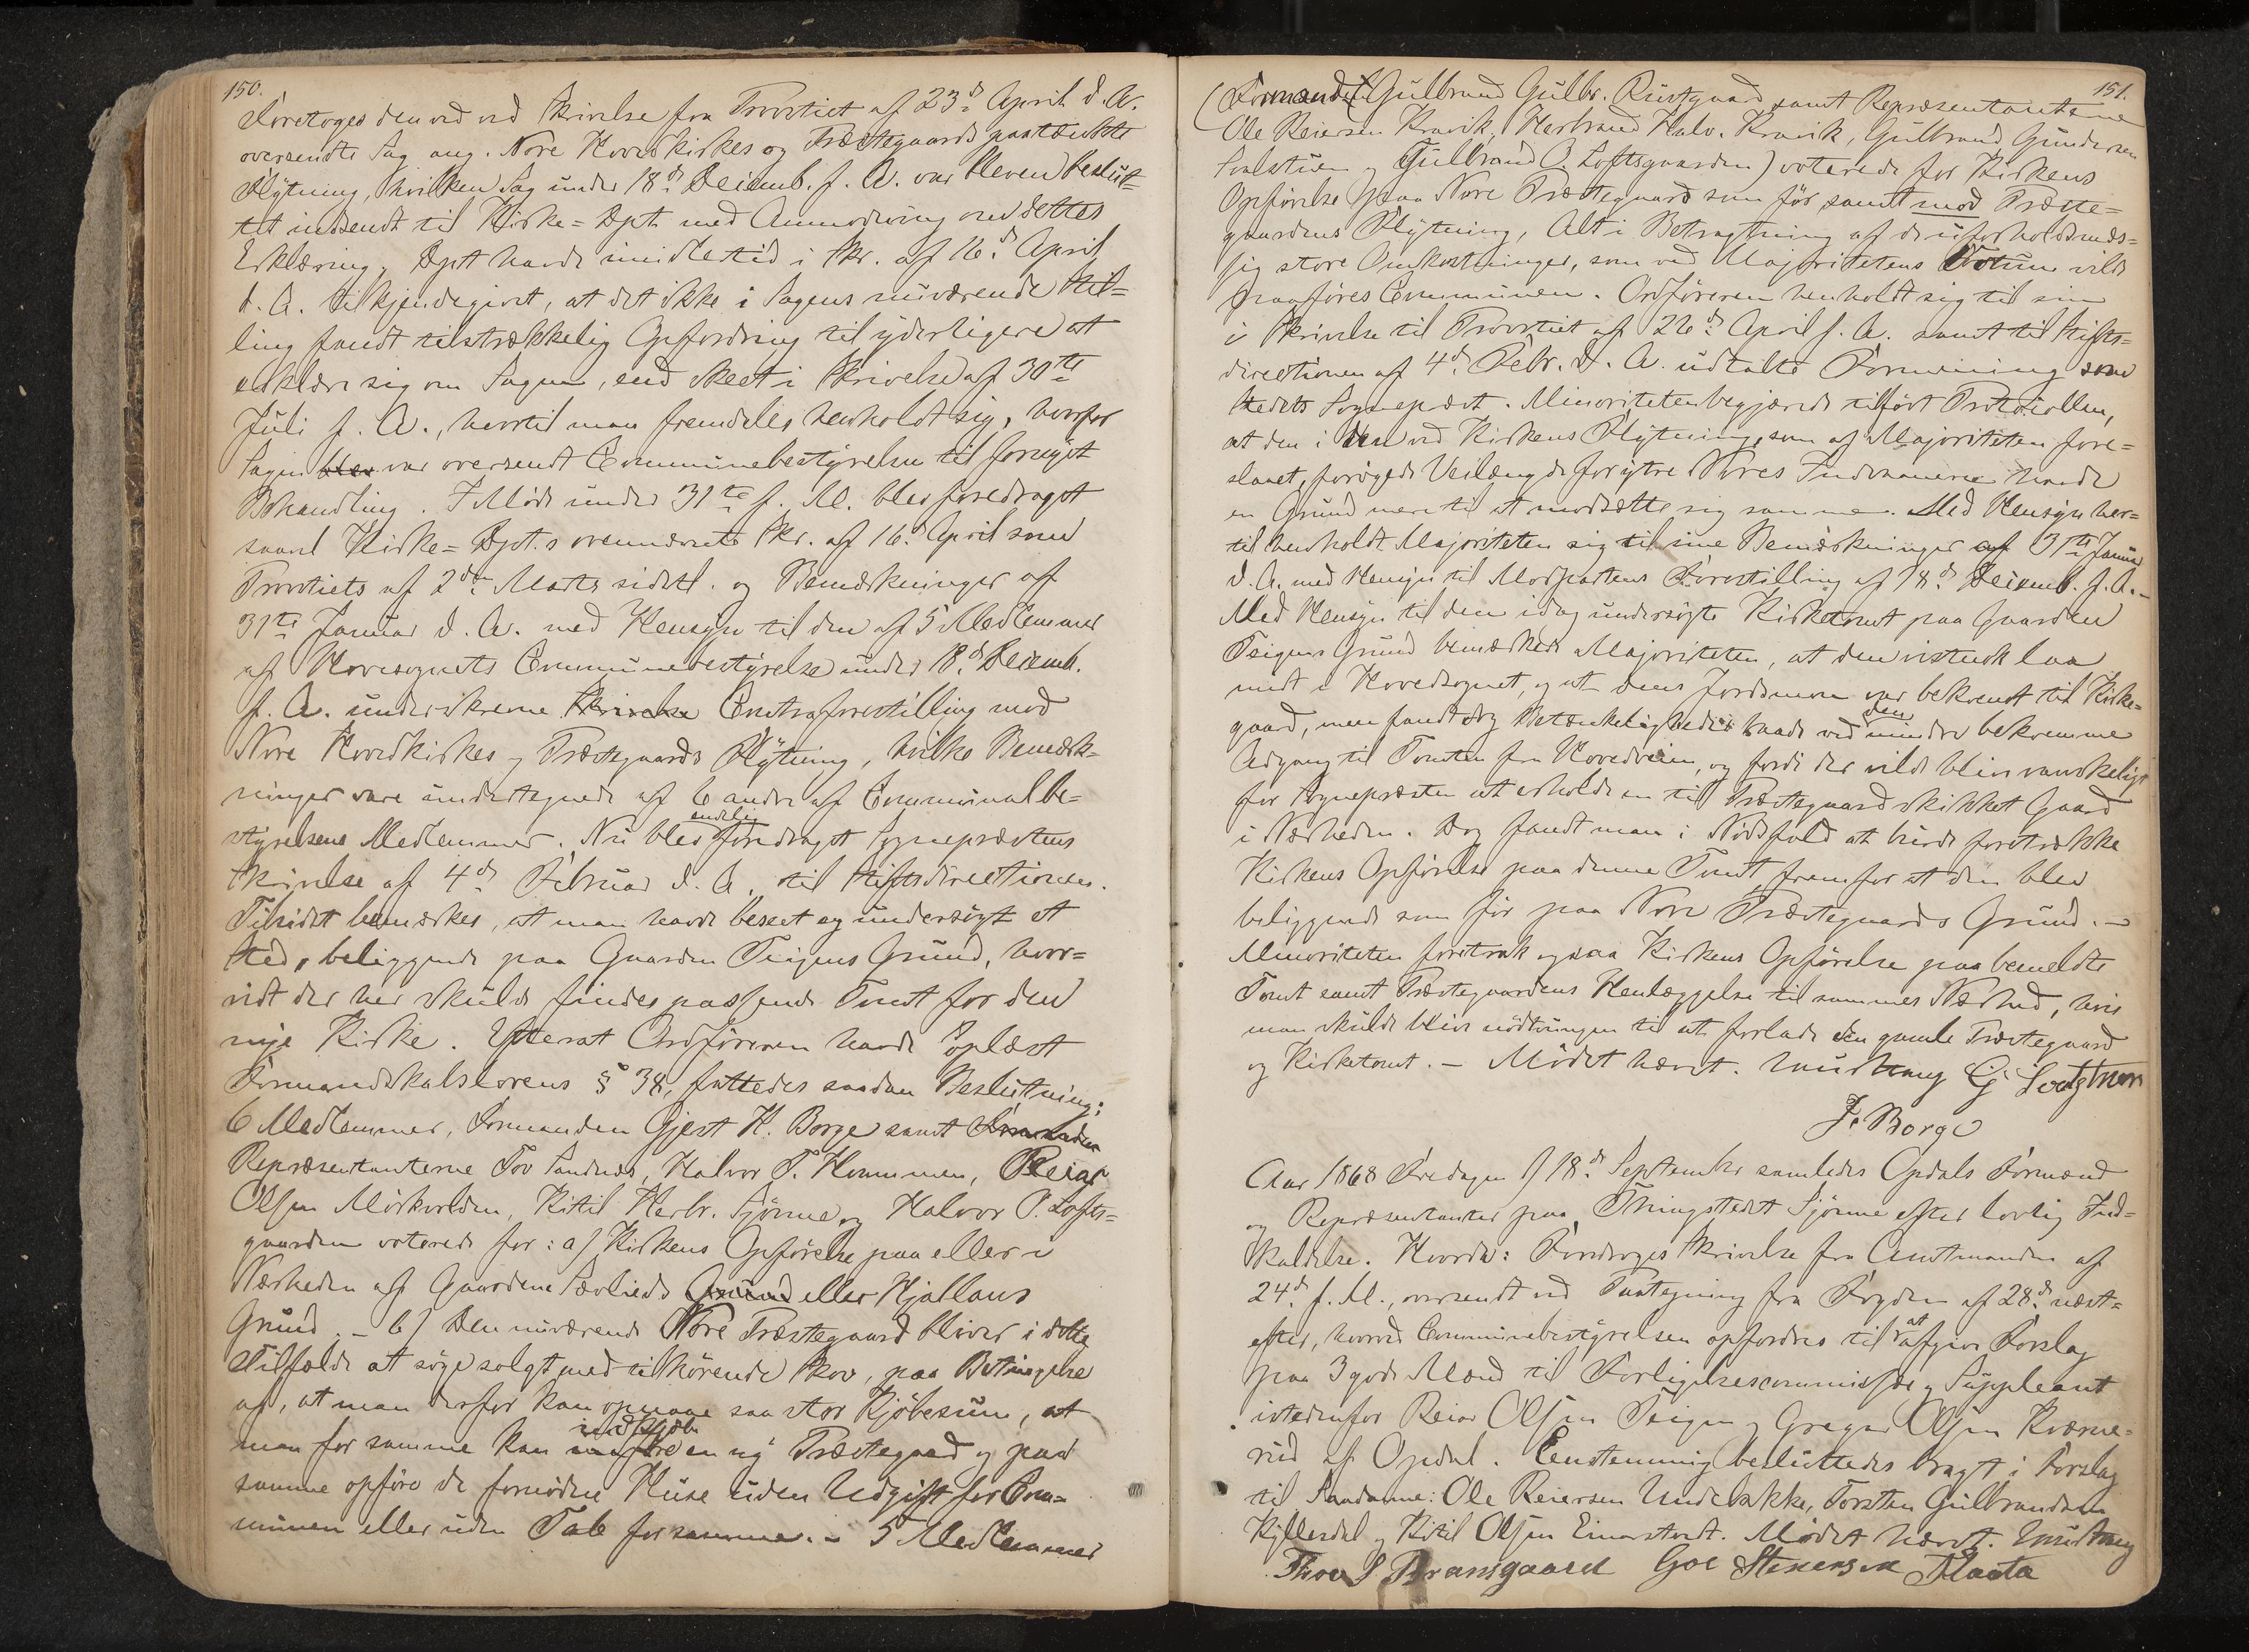 150.
Foretoges den ved ved Skrivelse fra Provstiet af 23d April d. A.
oversendte Sag ang. Nore Hovedkirkes og Præstegaards paatænkte
Flytning, hvilken Sag under 18d Decemb. f. A. var bleven beslut=
tet indsendt til Kirke=Dpt. med Anmodning om dettes
Erklæring. Dpt. havde imidlertid i Skr. af 16d April
d. A. tilkjendegivet, at det ikke i Sagens nuværende Stil=
ling fandt tilstrækkelig Opfordring til yderligere at
erklære sig om Sagen, end skeet i Skrivelse af 30te
Juli f. A., hvortil man fremdeles henholdt sig, hvorfor
Sagen blev var oversendt Communebestyrelsen til fornyet
Behandling. I Møde under 31te f. M. blev foredraget
saavel Kirke=Dpt.s ovennævnte Skr. af 16d April som
Provstiets af 2den Marts sidstl. og Bemærkninger af
31te Januar d. A. med Hensyn til den af 5 Medlemmer
af Hovesognets Communebestyrelse under 18d Decemb.
f. A. underskrevne Skrivelse Contraforestilling mod
Nore Hovedkirkes og Præstegaards Flytning, hvilke Bemærk=
ninger vare undertegnede af 6 andre af Communalbe=
styrelsens Medlemmer. Nu blev endelig foredraget Sognepræstens
Skrivelse af 4d Februar d. A. til Stiftsdirectionen.
Tilsidst bemærkes, at man havde beseet og undersøgt et
Sted, beliggende paa Gaarden Teigens Grund, hvor=
vidt der her skulde findes passende Tomt for den
nye Kirke. Efterat Ordføreren havde oplæst
Formandskabslovens § 38, fattedes saadan Beslutning:
6 Medlemmer, Formanden Gjest H. Borge samt Formanden
Repræsentanterne Tov Sandnes, Halvor T. Hvammen, Reiar
Olsen Mørkvolden, Kittil Herbr. Sjønne og Halvor P. Lofts=
gaarden voterede for: a) Kirkens Opførelse paa eller i
Nærheden af Gaardene Sevlieds Grund eller Hjallans
Grund. – b) Den nuværende Nore Præstegaard bliver i dette
Tilfælde at søge solgt med tilhørende Skov, paa Betingelse
af, at man derfor kan opnaae saa stor Kjøbesum, at
man for samme kan indkjøbe en ny Præstegaard og paa
samme opføre de fornødne Huse uden Udgift for Com=
munen eller uden Tab for samme. – 5 Medlemmer
151.
(Formanden Gulbrand Gulbr. Rustgaard samt Repræsentanterne
Ole Reiersen Kravik, Herbrand Halv. Kravik, Gulbrand Gundersen
og Gulbrand O. Loftsgaarden) voterede for Kirkens
Opførelse paa Nore Præstegaard som før samt mod Præste=
gaardens Flytning, Alt i Betragtning af de uforholdsmæs=
sig store Omkostninger, som ved Majoritetens Votum vilde
paaføres Communen. Ordføreren henholdt sig til sin
i Skrivelse til Provstiet af 26d April f. A. samt til Stifts=
directionen af 4d Febr. d. A. udtalte Formening som
Stedets Sognepræst. Minoriteten begjærede tilført Protocollen,
at den i den ved Kirkens Flytning, som af Majoriteten fore=
slaaet, forøgede Veilængde for ytre Nores Indvaanere havde
en Grund mere til at modsætte sig samme. Med Hensyn her=
til henholdt Majoriteten sig til sine Bemærkninger af 31te Januar
d. A. med Hensyn til Modpartens Forestilling af 18d Decemb. f. A. –
Med Hensyn til den idag undersøgte Kirketomt paa Gaarden
Teigens Grund bemærkede Majoriteten, at den vistnok laa
midt i Hovedsognet, og at dens Jordsmon var bekvemt til Kirke=
gaard, men fandt dog Betænkeligheder baade ved den mindre bekvemme
Adgang til Tomten fra Hovedveien, og fordi der vilde blive vanskeligt
for Sognepræsten at erholde en til Præstegaard skikket Gaard
i Nærheden. Dog fandt man i Nødsfald at burde foretrække
Kirkens Opførelse paa denne Tomt fremfor at den blev
beliggende som før paa Nore Præstegaards Grund. –
Minoriteten foretrak ogsaa Kirkens Opførelse paa bemeldte
Tomt samt Præstegaardens Henlæggelse til sammes Nærhed, hvis
man skulde blive nødtvungen til at forlade den gamle Præstegaard
og Kirketomt. – Mødet hævet.
J. Borge
Aar 1868 Fredagen d 18d September samledes Opdals Formænd
og Repræsentanter paa Thingstedet Sjønne efter lovlig Ind=
kaldelse. Hvorda: Foredroges Skrivelse fra Amtmanden af
24d f. M., oversendt ved Paategning fra Fogden af 28d næst=
efter, hvorved Communebestyrelsen opfordres til at afgive Forslag
paa 3 gode Mænd til Forligelsescommissær og Suppleant
istedenfor Reiar Olsen Teigen og Gregar Olsen Kværne=
rud af Opdal. Eenstemmig besluttedes bragt i Forslag
til Saadanne: Ole Reiersen Underbakke, Torsten Gulbrandsen
Killerdal og Kittil Olsen Einarstvedt. Mødet hævet.
Thov S Bransgaard Goe Stenersen Flaata